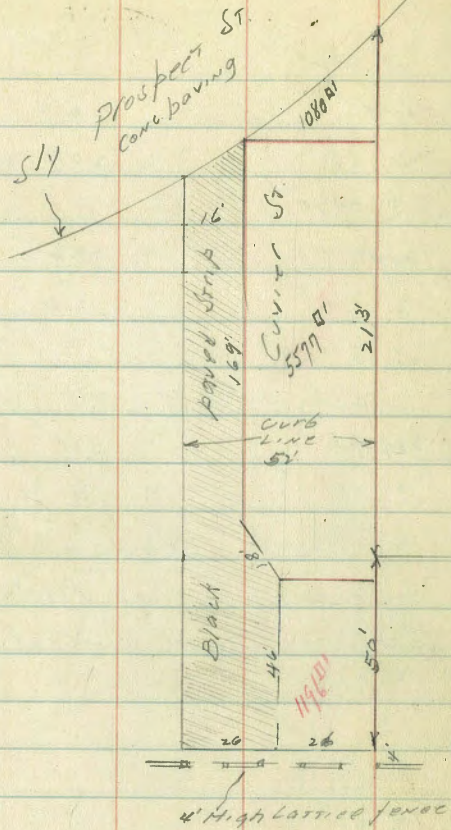 ST.
Prospect
conc. paving
Sly
1080 □'
16'
Paved Strip
169'
Cuvier St.
5577 □'
213'
curb
LINE
52'
18'
Black
46'
1196 □'
50'
26
26
4'
4' High Lattice fence